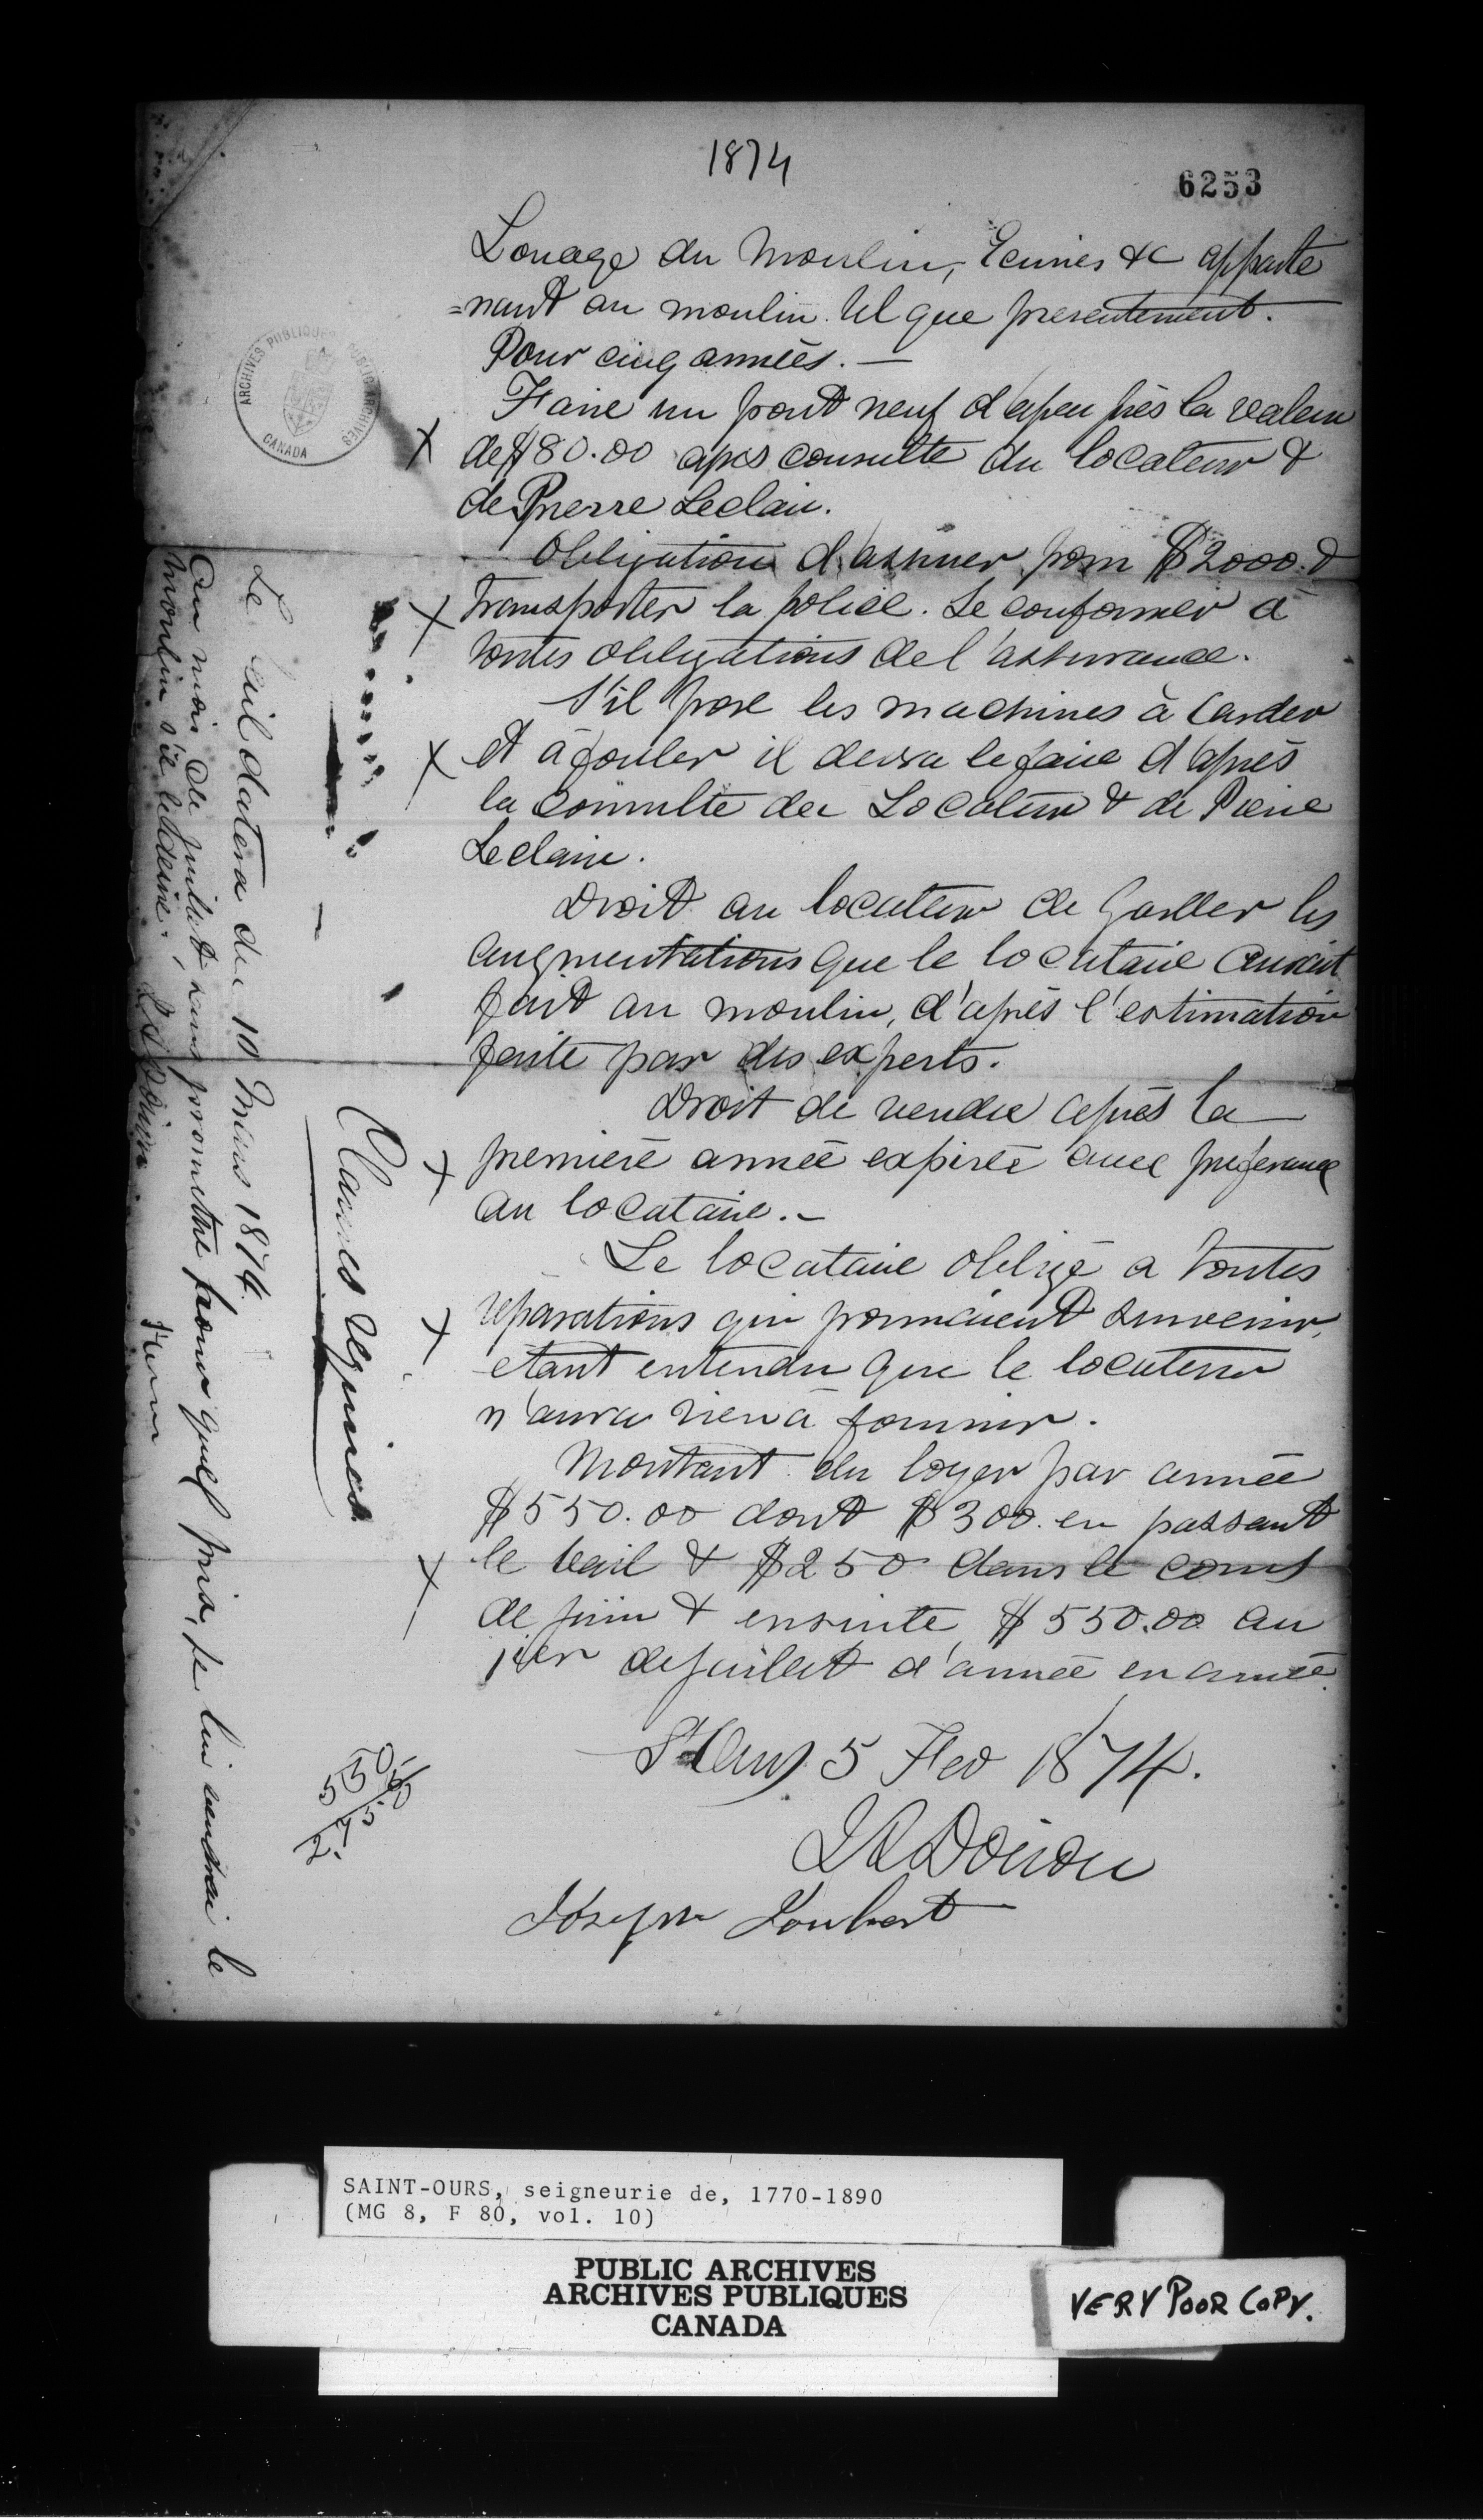 1874
6253
Louage du Moulin, Ecuries &c apparte
=nant au moulin tel que presentement.
Pour cinq années. —
Faire un pont neuf d'apeu près la valeur
X de $80.00 aprs consulte du locateur &
de Pierre Leclair.
Obligation d'assurer pour $2000. &
X transporter la police. Se conformer à
toutes obligations de l'assurance.
S'il pose les machines à Carder
X et à fouler il devra le faire d'après
la consulte du Locateur & de Pierre
Leclaire.
Droit au locateur de garder les
augmentations que le locataire aurait
fait au moulin, d'après l'estimation
faite par des experts.
Droit de vendre après la
X première année expirée avec préference
au locataire. —
Le locataire obligé a toutes
X réparations qui pourraient survenir,
etant entendu que le locateur
n'aura rien à fournir.
Montant du loyer par année
$550.00 dont $300. en passant
X le bail & $250 dans le cours
de juin & ensuite $550.00 au
1er de juillet d'année en année.
St Ours 5 Fev 1874.
Joseph Joubert
Clauses
Le bail datera du 10 Mars 1874.
Au mois de juillet, sans promettre pour quel prix, je lui vendrai le
moulin s'il le désire.
550
5
275
ARCHIVES PUBLIQUES PUBLIC ARCHIVES
CANADA
SAINT-OURS, seigneurie de, 1770-1890
(MG 8, F 80, vol. 10)
PUBLIC ARCHIVES
ARCHIVES PUBLIQUES
CANADA
VERY POOR COPY.